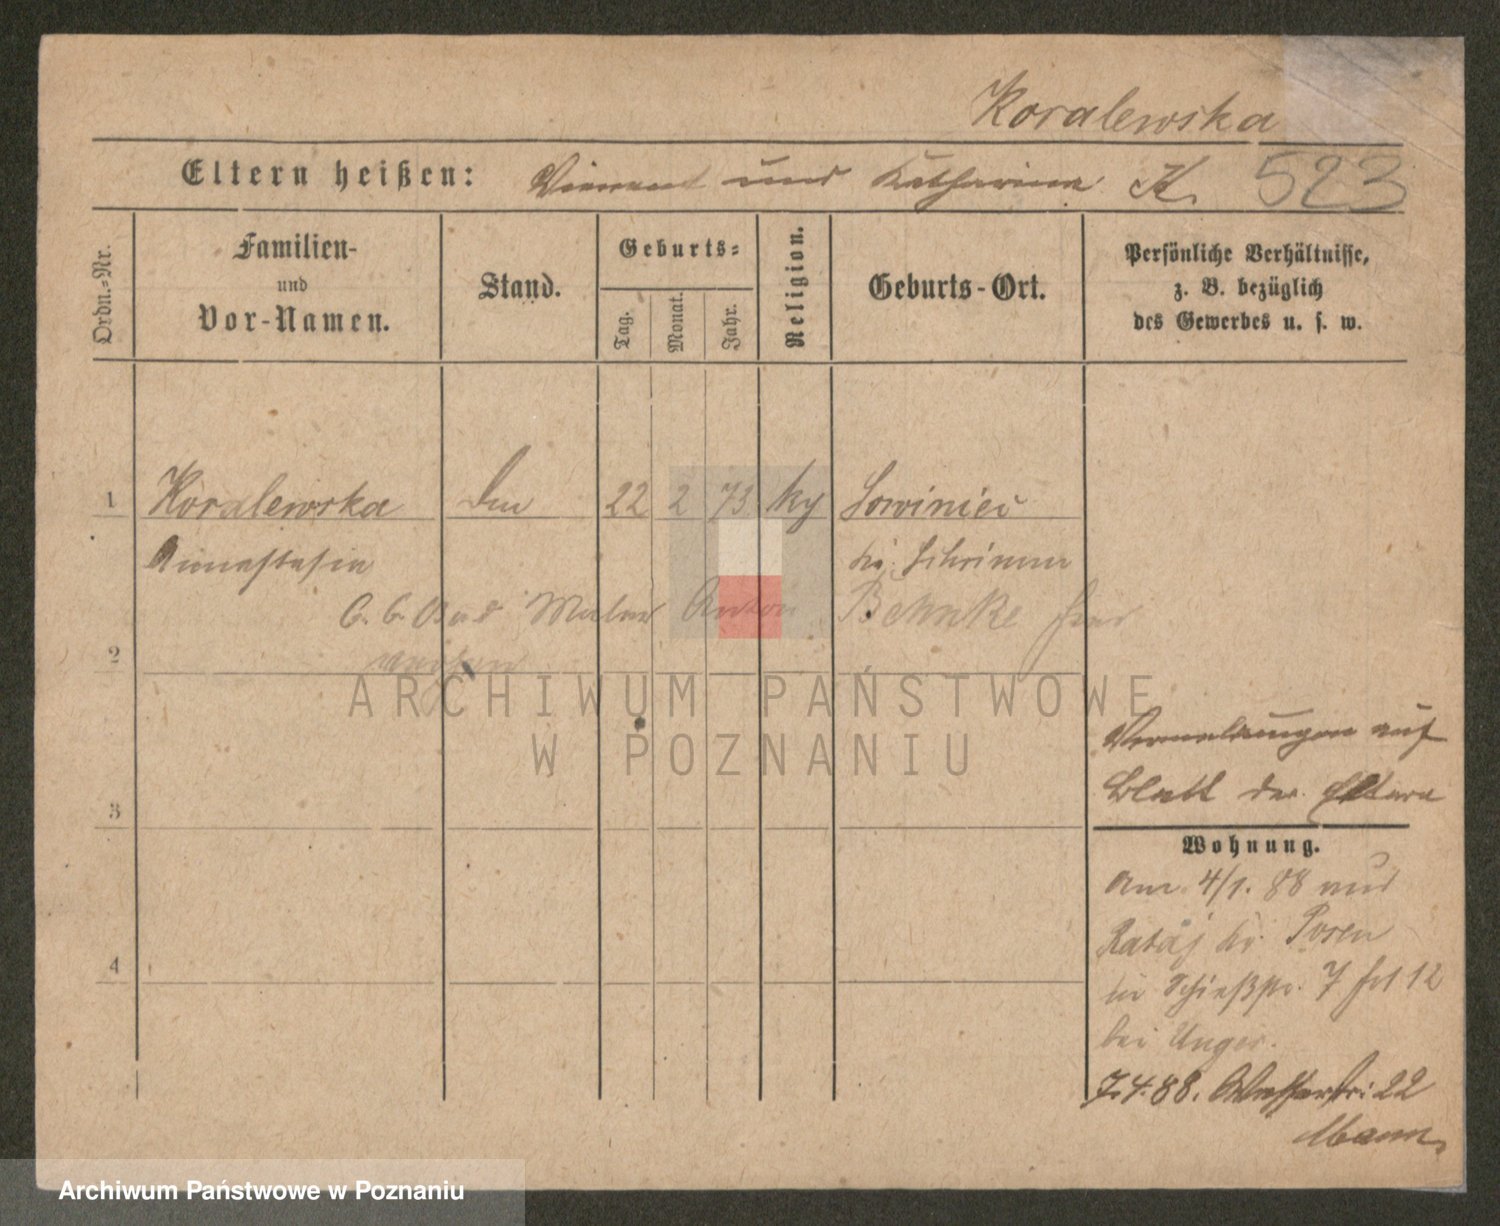 Koralewska
Eltern heißen: Vincent und Katharina K. 523
Ordn.-Nr.
Familien-
und
Vor-Namen.
Stand.
Geburts-
Tag. Monat. Jahr.
Religion.
Geburts-Ort.
Persönliche Verhältnisse,
z. B. bezüglich
des Gewerbes u. s. w.
1 Koralewska 22 2 73 Sowiniec
Annastasia Kr. Schrimm
Maler Anton Behnke hier
2
ARCHIWUM PAŃSTWOWE
W POZNANIU
auf
3 Blatt der Eltern
Wohnung.
Am 4/1. 88 aus
4 Rataj Kr. Posen
in Schießstr. 7 hrt 12
bei Unger.
7.4.88. Wasserstr: 22
Archiwum Państwowe w Poznaniu